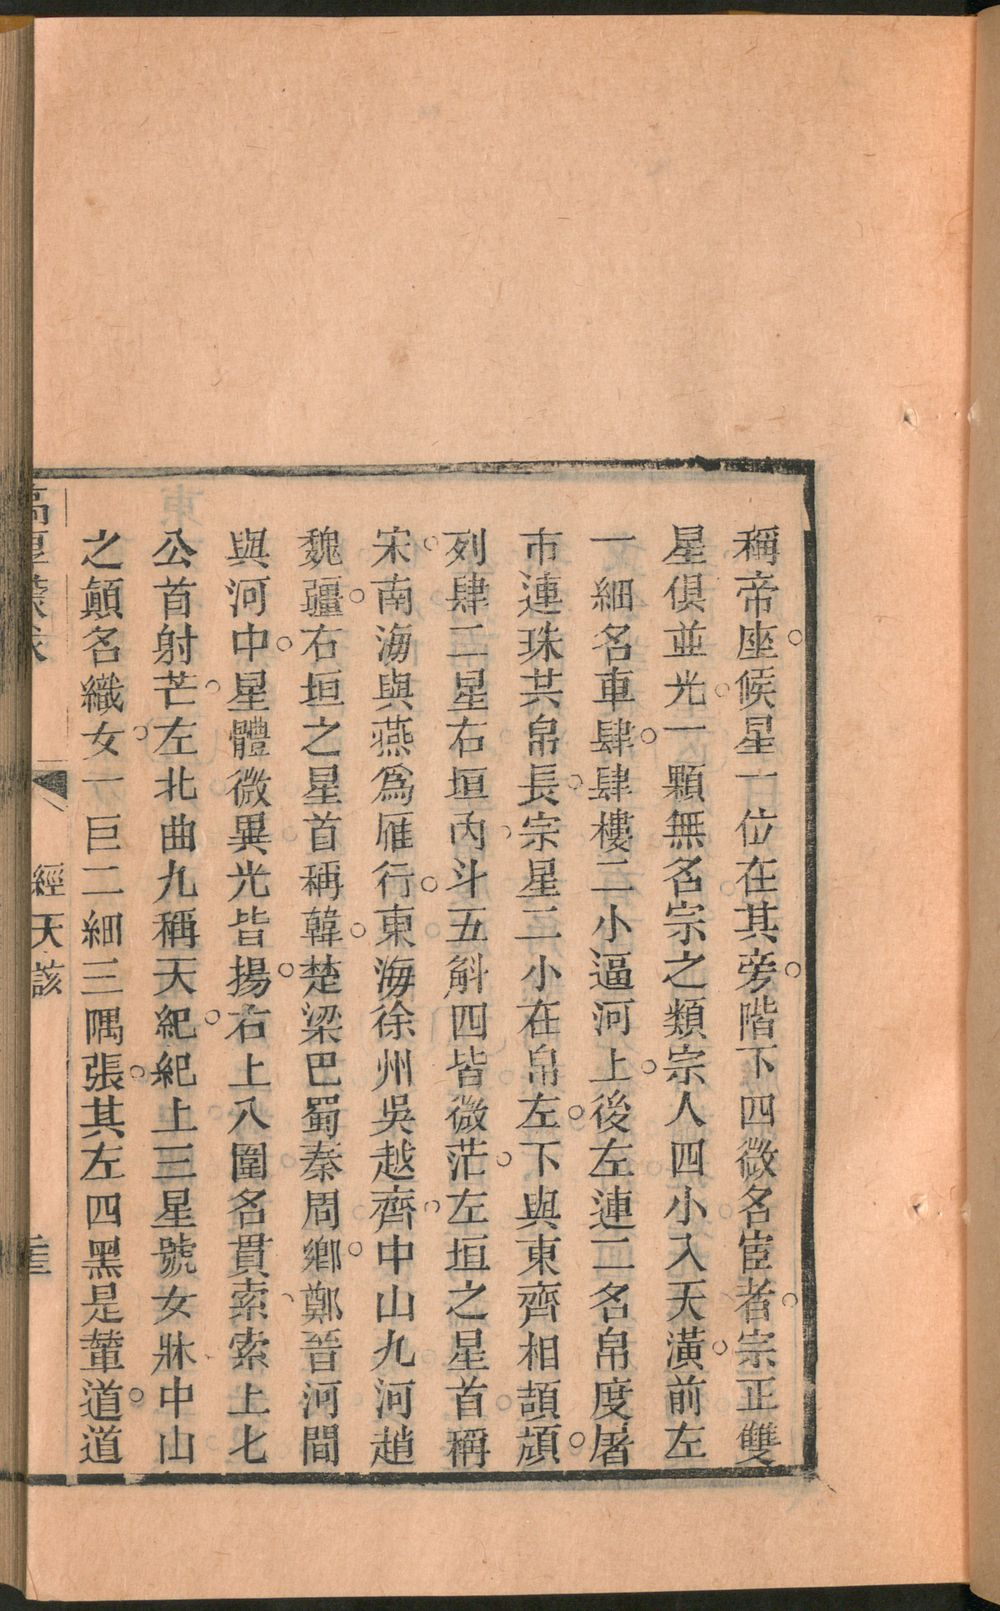 稱帝座。候星一位在其旁。階下四微名宦者。宗正雙
星俱並光。一顆無名宗之類。宗人四小入天潢。前左
一細名車肆。肆樓二小逼河上。後左連二名帛度。屠
市連珠共帛長。宗星二小在帛左。下與東齊相頡頏。
列肆二星右垣內。斗五斛四皆微茫。左垣之星首稱
宋。南海與燕爲雁行。東海徐州吳越齊。中山九河趙
魏疆。右垣之星首稱韓。楚梁巴蜀秦周鄉。鄭晉河間
與河中。星體微異光皆揚。右上八圍名貫索。索上七
公首射芒。左北曲九稱天紀。紀上三星號女牀。中山
之顛名織女。一巨二細三隅張。其左四黑是輦道。道
經天該